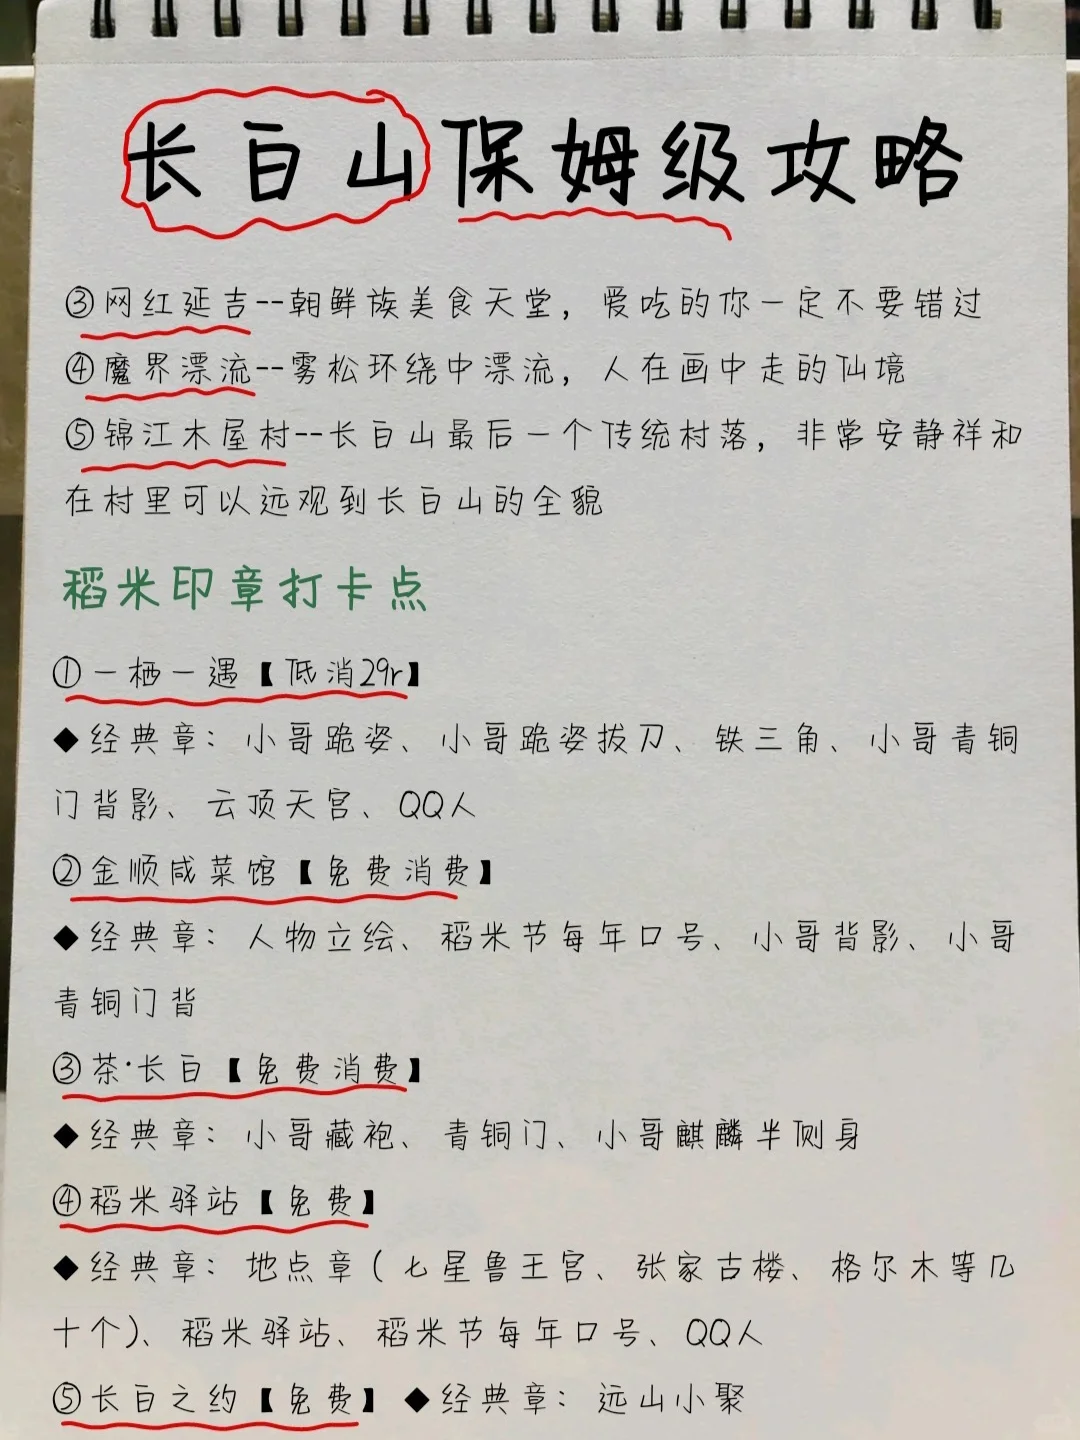 长白山保姆级攻略
③网红延吉--朝鲜族美食天堂，爱吃的你一定不要错过
④魔界漂流--雾松环绕中漂流，人在画中走的仙境
⑤锦江木屋村--长白山最后一个传统村落，非常安静祥和
在村里可以远观到长白山的全貌
稻米印章打卡点
①一栖一遇【低消29r】
◆经典章：小哥跪姿、小哥跪姿拔刀、铁三角、小哥青铜
门背影、云顶天宫、QQ人
②金顺咸菜馆【免费消费】
◆经典章：人物立绘、稻米节每年口号、小哥背影、小哥
青铜门背
③茶·长白【免费消费】
◆经典章：小哥藏袍、青铜门、小哥麒麟半侧身
④稻米驿站【免费】
◆经典章：地点章(七星鲁王宫、张家古楼、格尔木等几
十个)、稻米驿站、稻米节每年口号、QQ人
⑤长白之约【免费】 ◆经典章：远山小聚